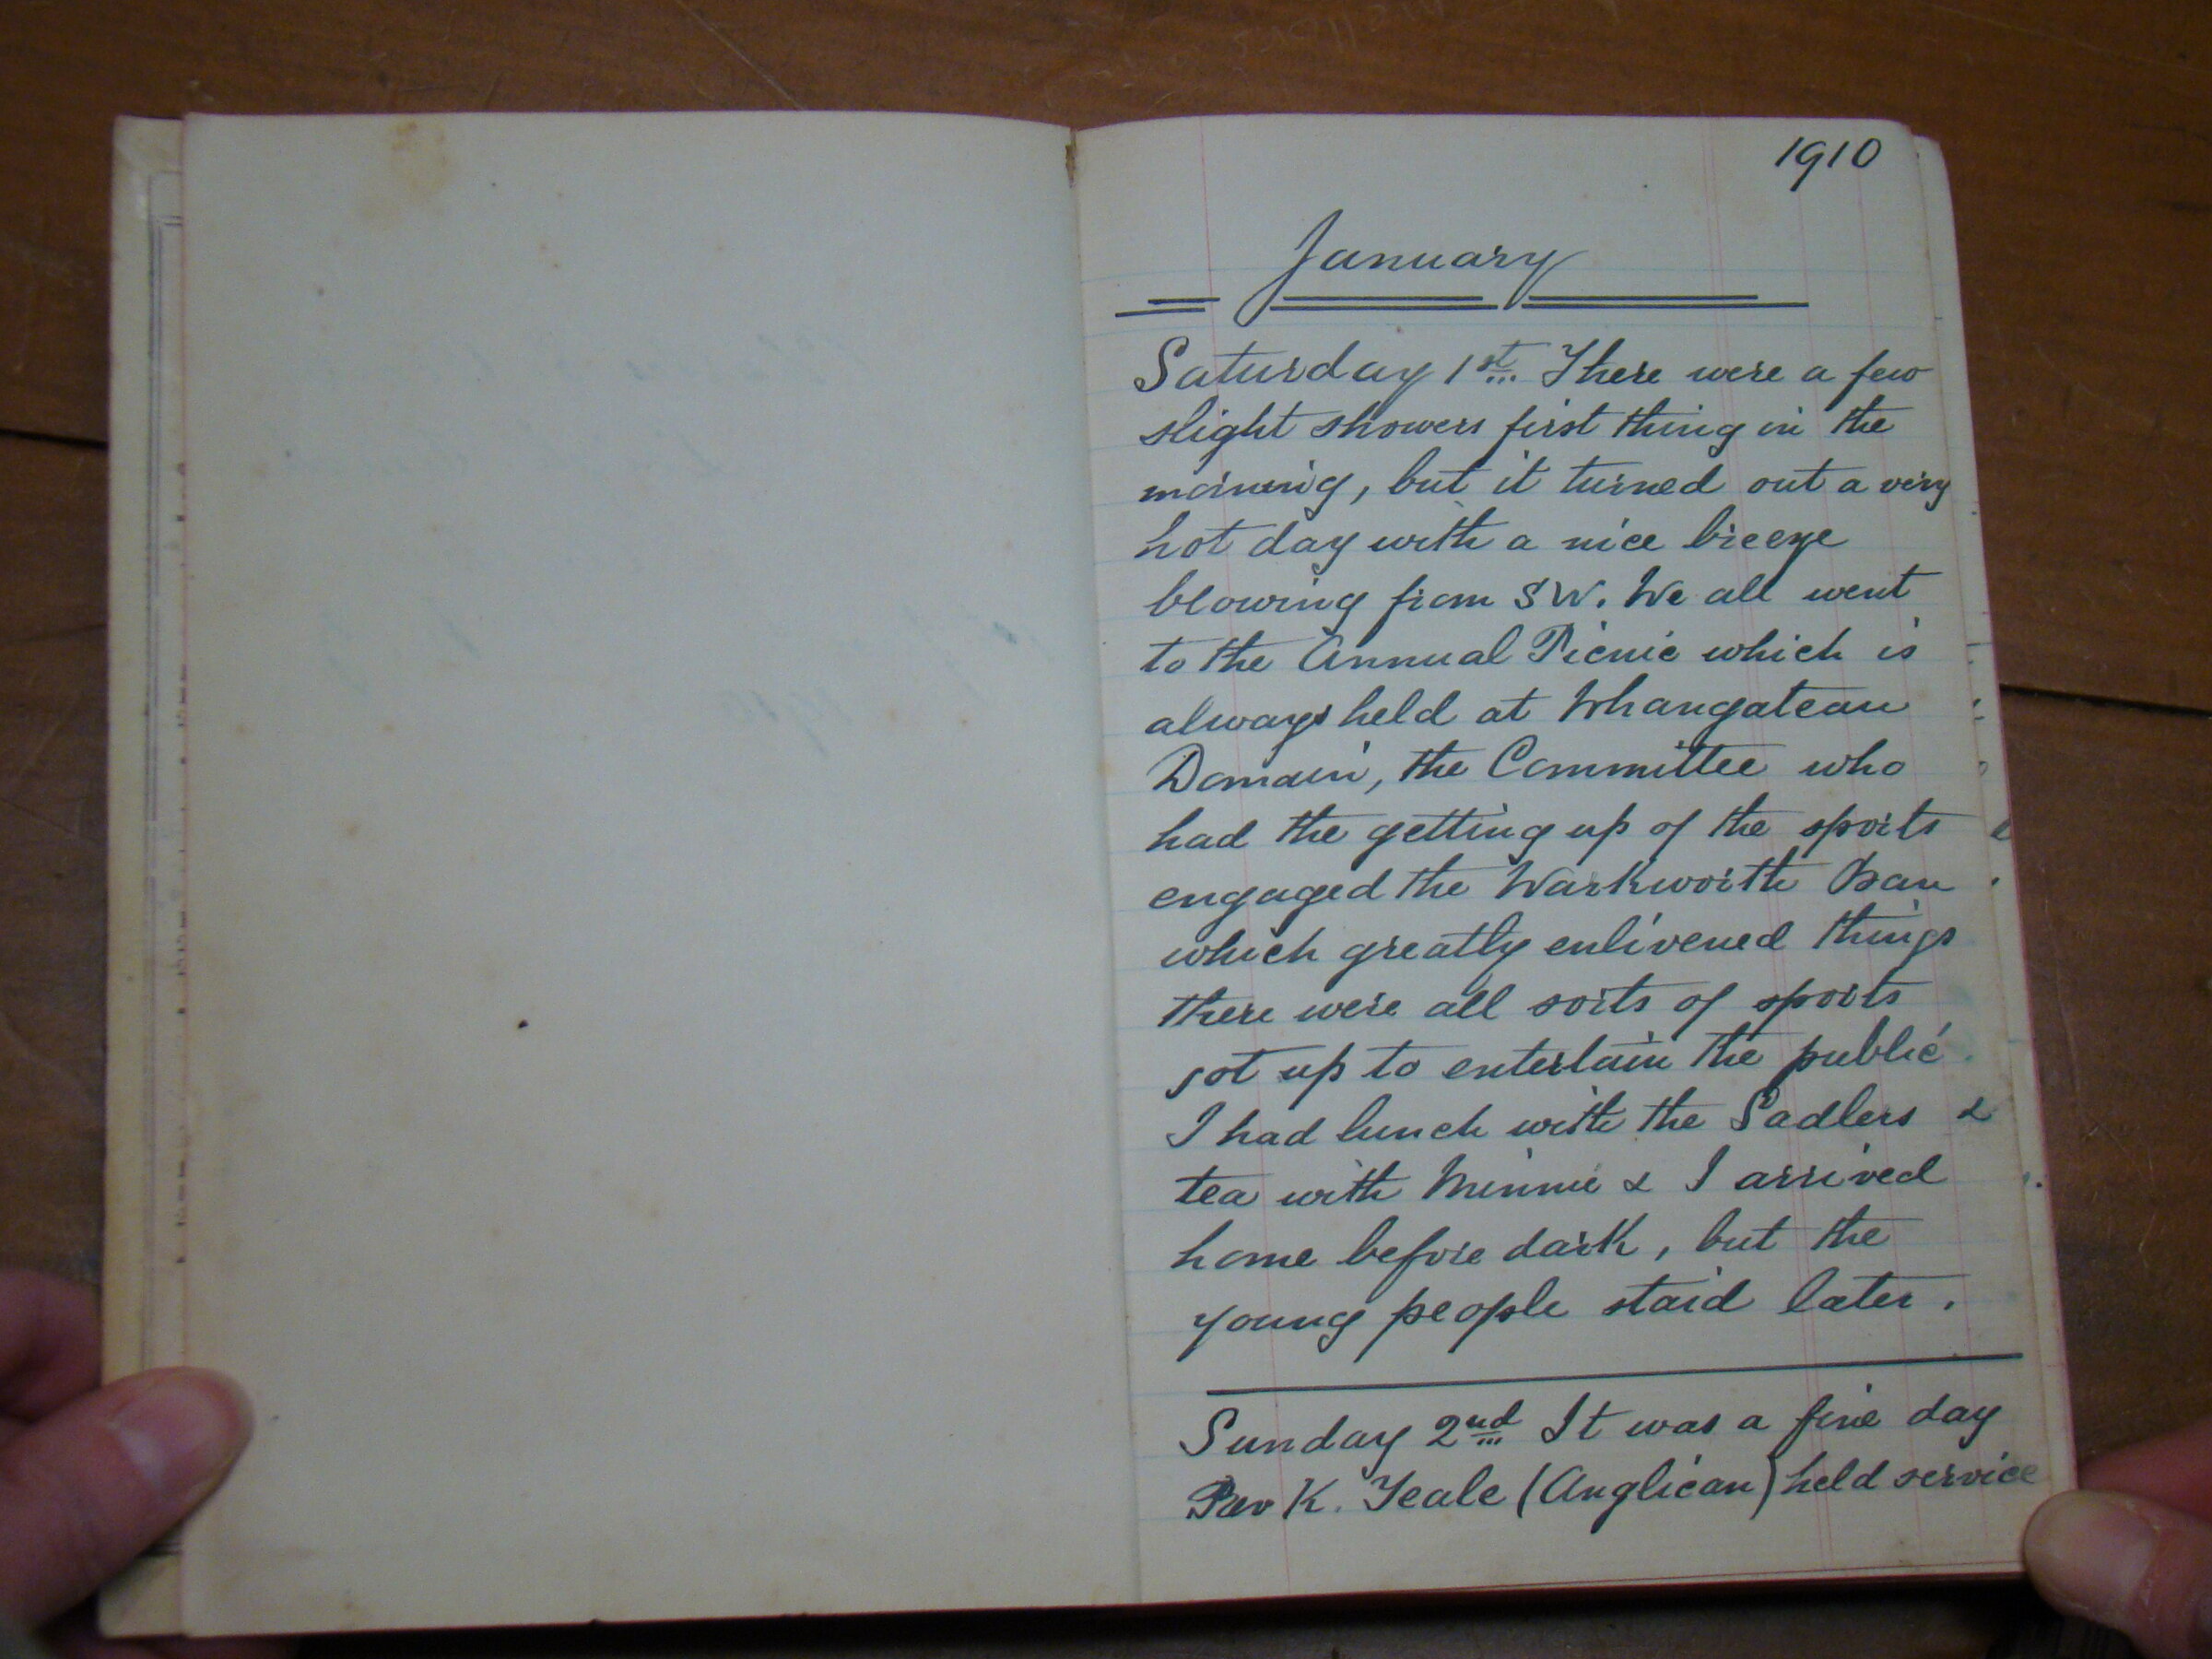 1910
January
Saturday 1st There were a few
slight showers first thing in the
morning, but it turned out a very
hot day with a nice breeze
blowing from SW. We all went
to the Annual Picnic which is
always held at Whangateau
Domain, the Committee who
had the getting up of the sports
engaged the Warkworth Ban
which greatly enlivened things
there were all sorts of sports
got up to entertain the public.
I had lunch with the Sadlers &
tea with Minnie & I arrived
home before dark, but the
young people staid later.
Sunday 2nd It was a fine day
Rev K. Teale (Anglican) held service